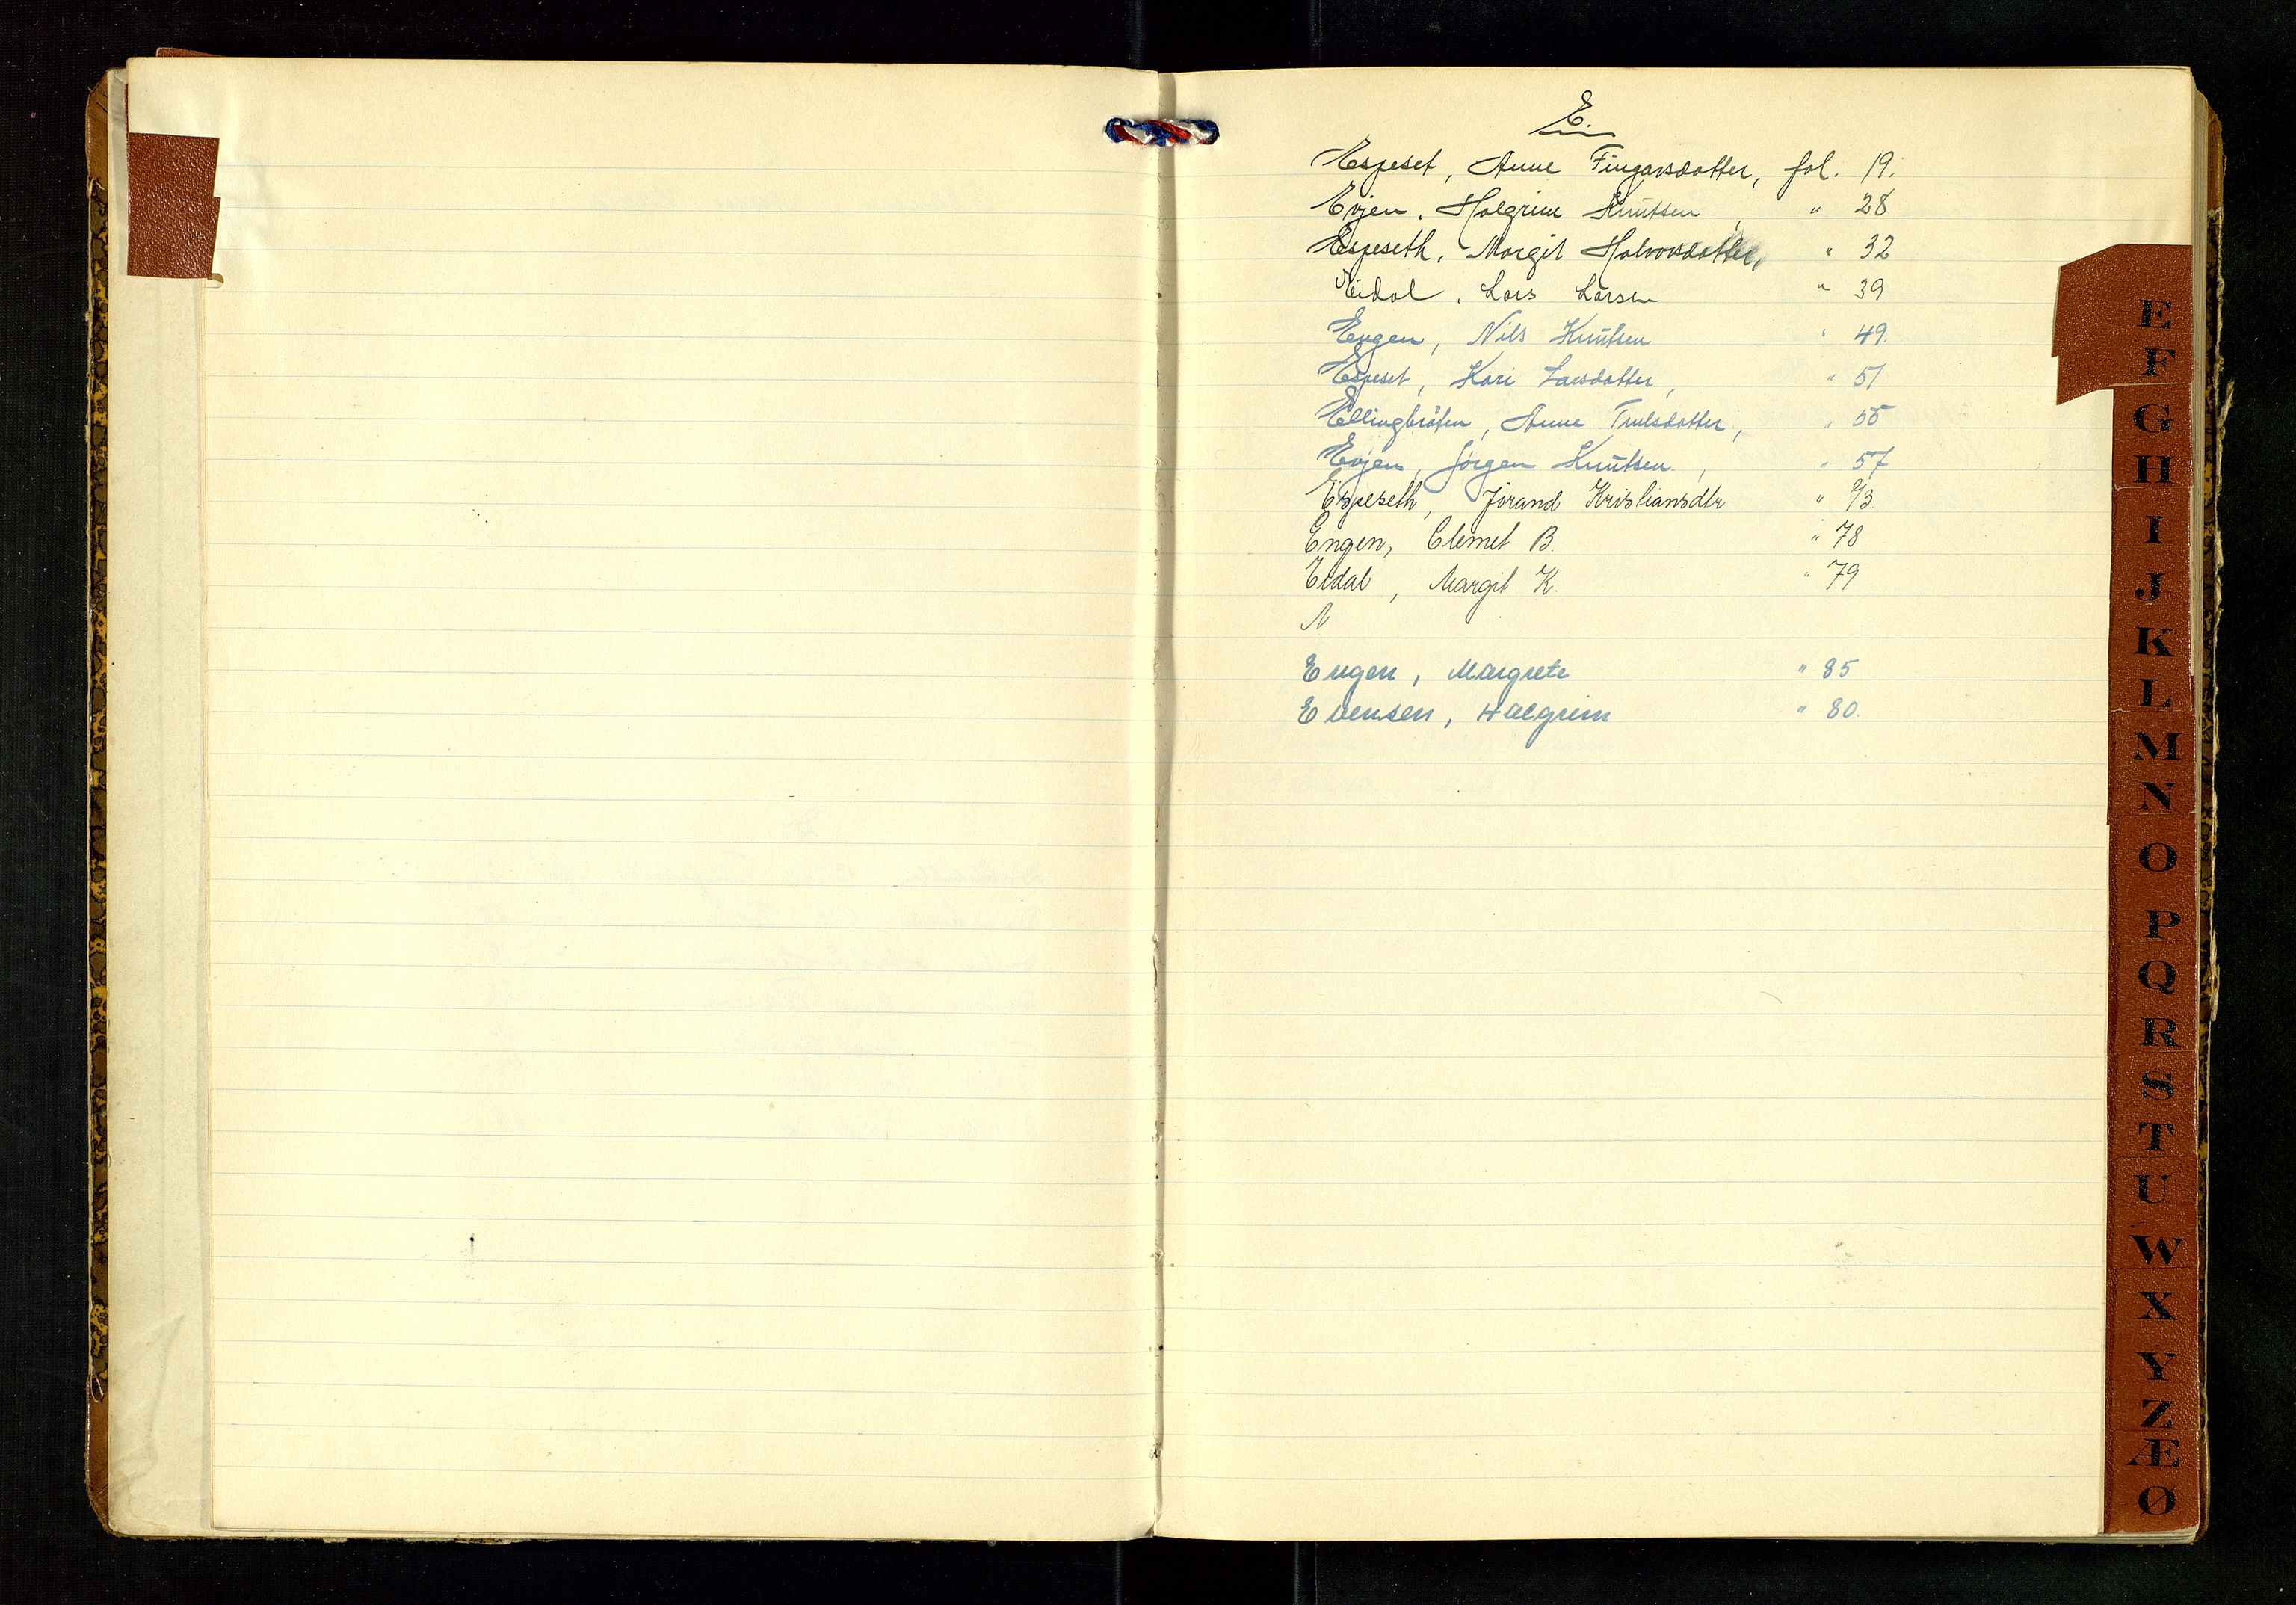 E.
Espeset, Anne Fingarsdotter, fol. 19.
Evjen, Halgrim Knutsen, " 28
Espeseth, Margit Halvorsdotter, " 32
Eidal, Lars Larsen " 39
Engen, Nils Knutsen " 49.
Espeset, Kari Larsdotter, " 51
Ellingbråten, Anne Trulsdotter, " 55
Evjen, Jørgen Knutsen, " 57
Espeseth, Jørand Kristiansdtr "
Engen, Clemet B. " 78
Eidal, Margit K. " 79
N
Engen, Margrete " 85
Evensen, Halgrim " 80.
E
F
G
H
I
J
K
L
M
N
O
P
Q
R
S
T
U
W
X
Y
Z
Æ
Ø